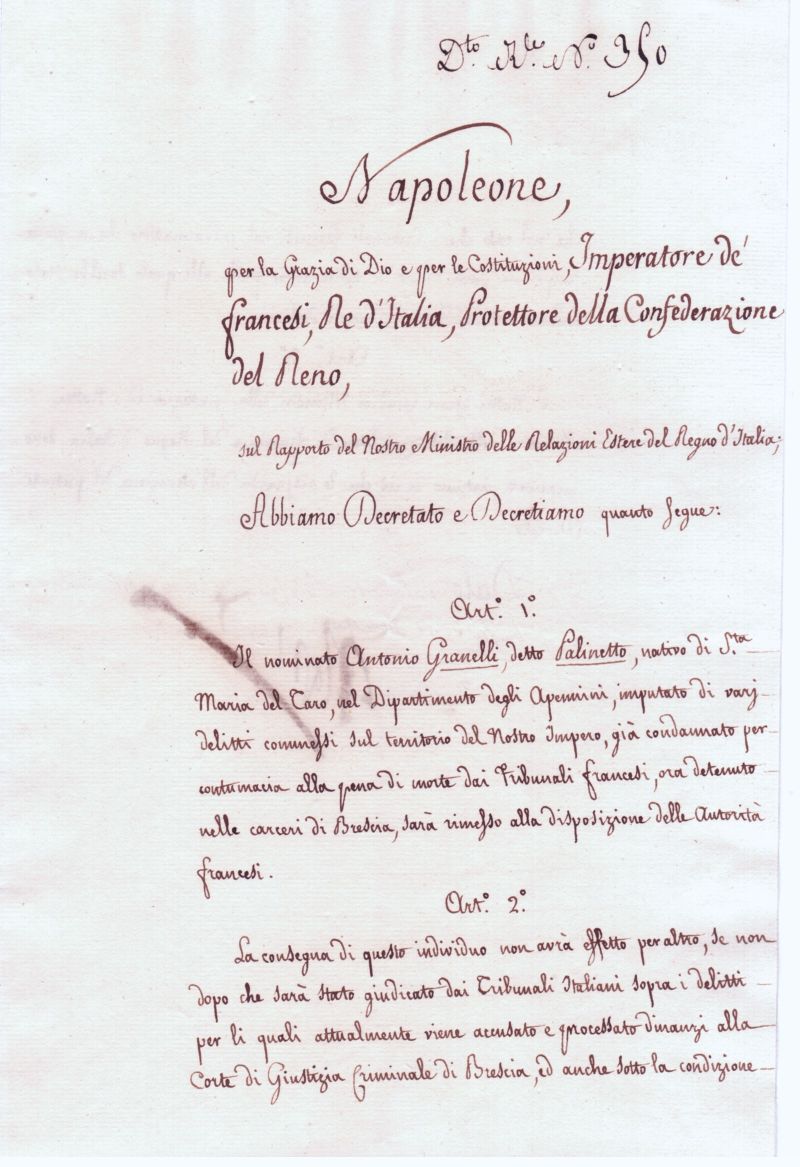 Dto. Rle. No. 350
Napoleone,
per la Grazia di Dio e per le Costituzioni, Imperatore de'
francesi, Re d'Italia, Protettore della Confederazione
del Reno,
sul Rapporto del Nostro Ministro delle Relazioni Estere del Regno d'Italia;
Abbiamo Decretato e Decretiamo quanto segue:
Art.º 1.º
Il nominato Antonio Granelli, detto Palinetto, nativo di S.ta
Maria del Taro, nel Dipartimento degli Apennini, imputato di varj
delitti commessi sul territorio del Nostro Impero, già condannato per
contumacia alla pena di morte dai Tribunali francesi, ora detenuto
nelle carceri di Brescia, sarà rimesso alla disposizione delle Autorità
francesi.
Art.º 2.º
La consegna di questo individuo non avrà effetto per altro, se non
dopo che sarà stato giudicato dai Tribunali Italiani sopra i delitti
per li quali attualmente viene accusato e processato dinanzi alla
Corte di Giustizia Criminale di Brescia, ed anche sotto la condizione